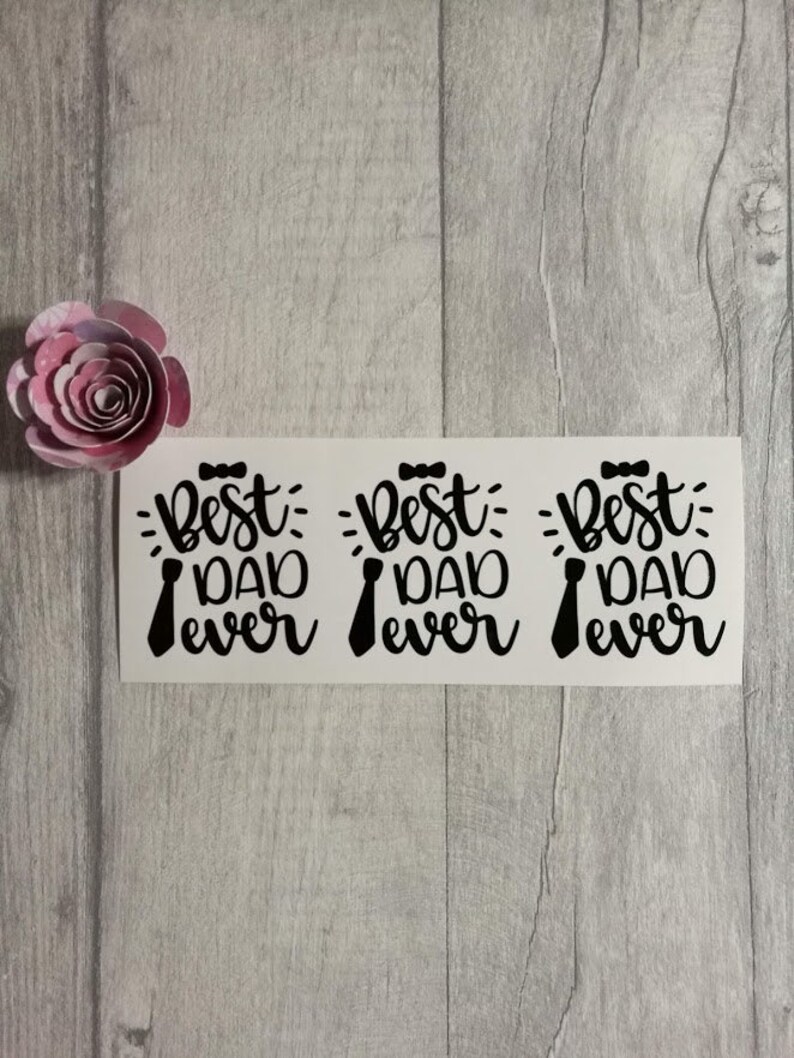 Best
DAD
ever
Best
DAD
ever
Best
DAD
ever